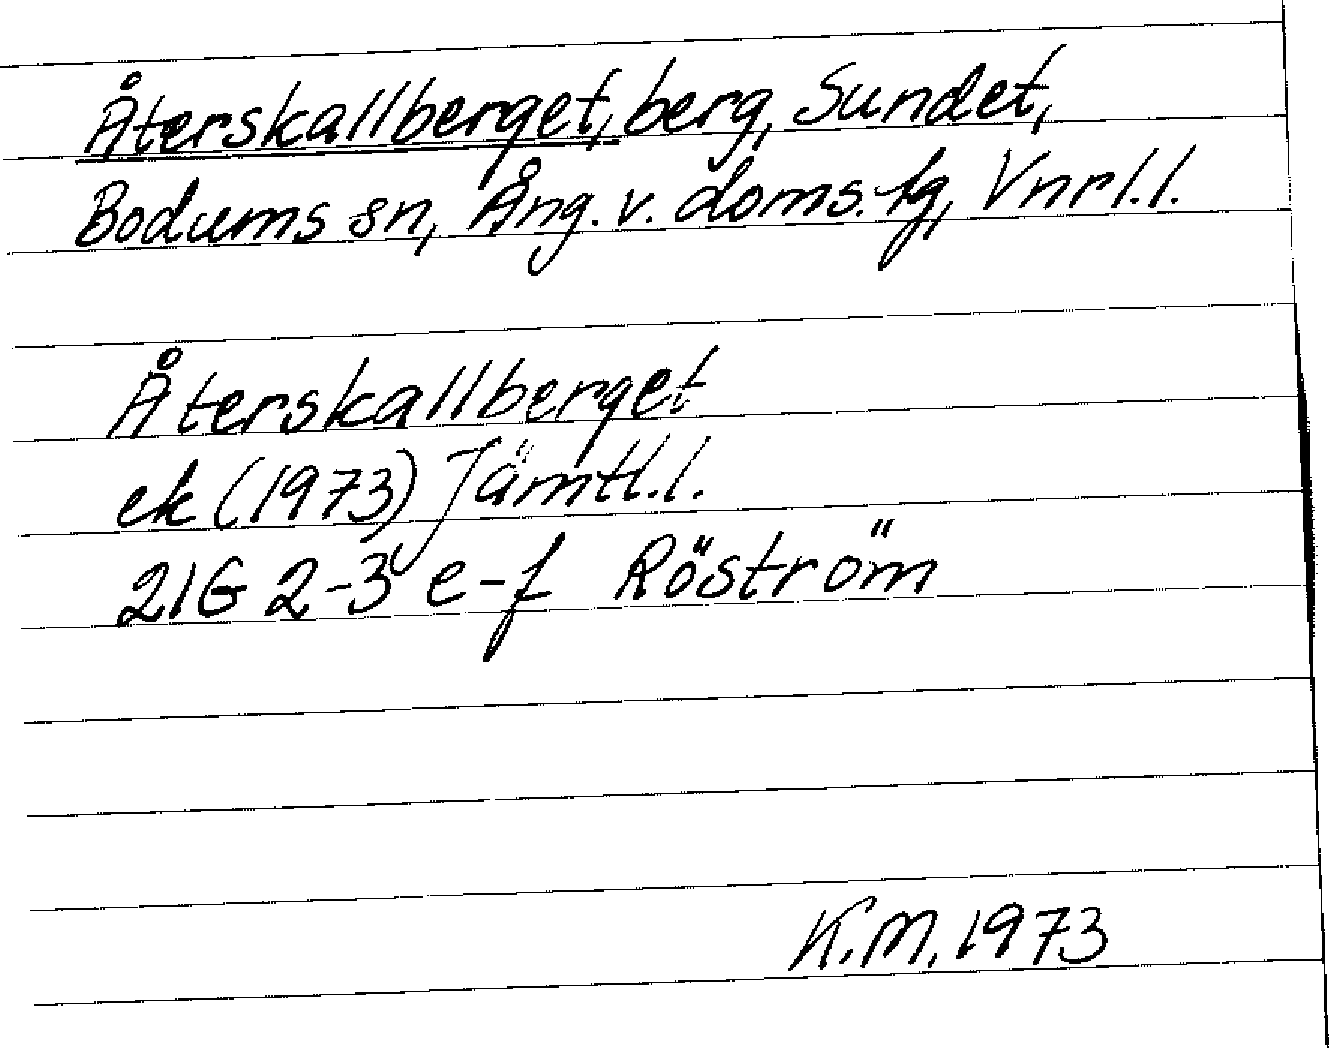 Återskallberget, berg, Sundet,
Bodums sn, Ång. v. doms.-fg, Vnrl.l.
Återskallberget
ek (1973) Jämtl.l.
21G 2-3 e-f Röström
K.M. 1973